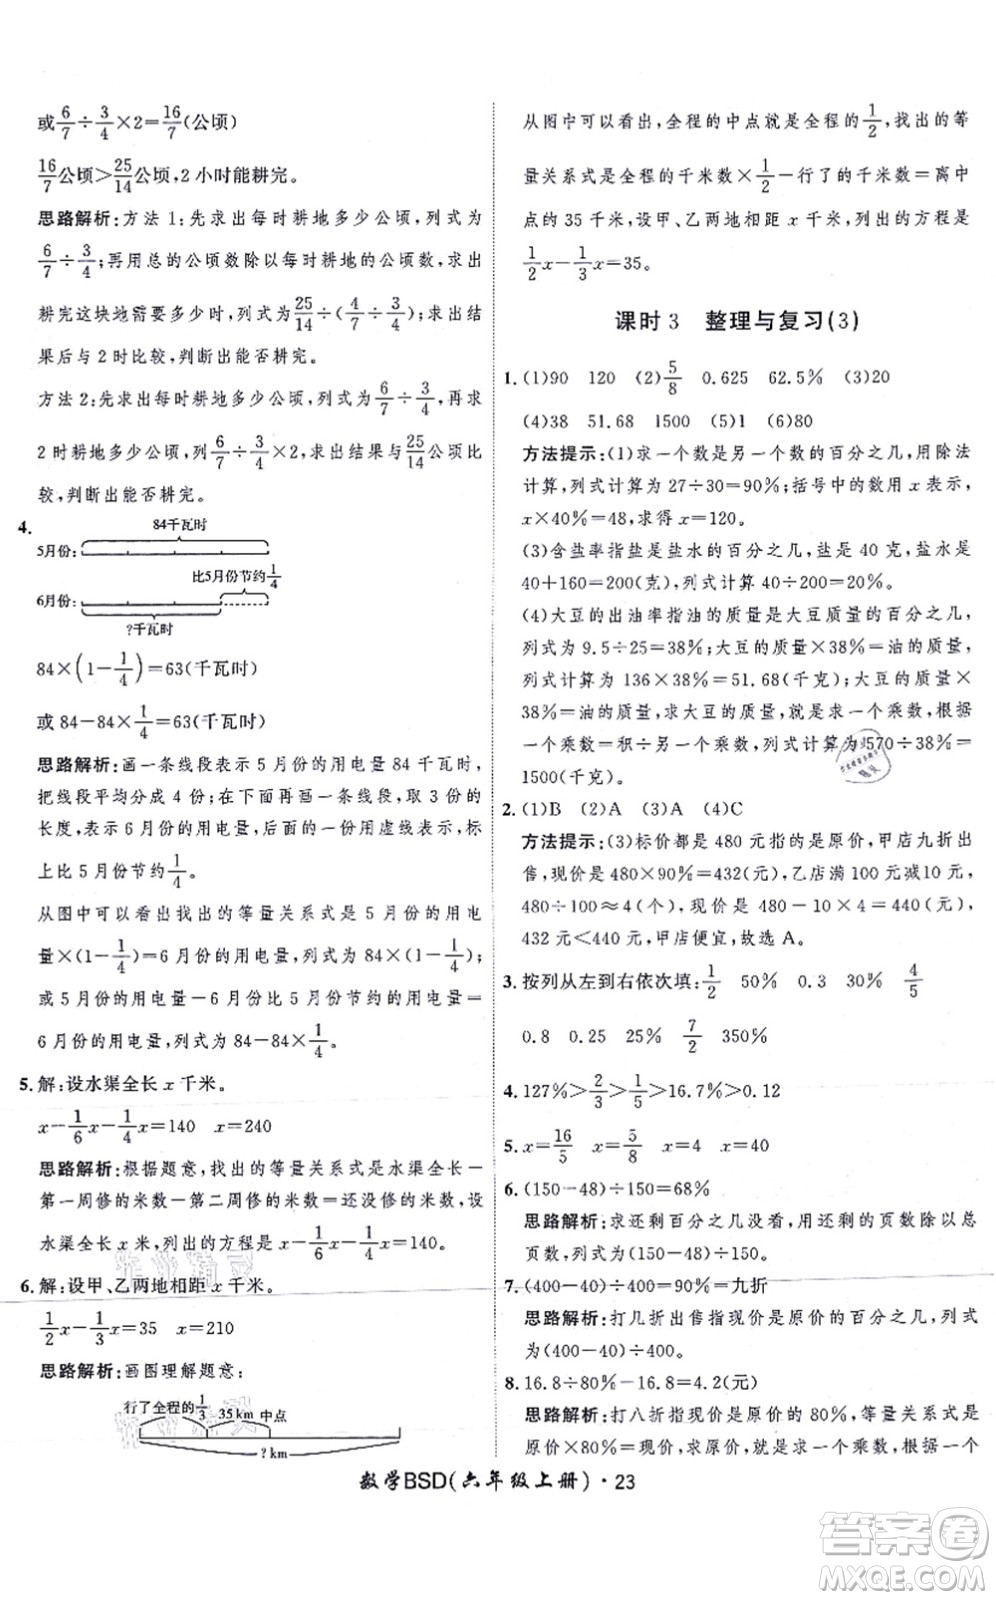 或6/7÷3/4×2=16/7(公顷)
16/7公顷>25/14公顷,2小时能耕完。
思路解析:方法1:先求出每时耕地多少公顷,列式为
6/7÷3/4;再用总的公顷数除以每时耕地的公顷数,求出
耕完这块地需要多少时,列式为25/14÷(4/7÷3/4);求出结
果后与2时比较,判断出能否耕完。
方法2:先求出每时耕地多少公顷,列式为6/7÷3/4,再求
2时耕地多少公顷,列6/7÷3/4×2,求出结果与25/14公顷比
较,判断出能否耕完。
4.
84千瓦时
5月份:
比5月份节约1/4
6月份:
?千瓦时
84×(1-1/4)=63(千瓦时)
或84-84×1/4=63(千瓦时)
思路解析:画一条线段表示5月份的用电量84千瓦时,
把线段平均分成4份;在下面再画一条线段,取3份的
长度,表示6月份的用电量,后面的一份用虚线表示,
标上比5月份节约1/4。
从图中可以看出找出的等量关系式是5月份的用电
量×(1-1/4)=6月份的用电量,列式为84×(1-1/4);
或5月份的用电量-6月份比5月份节约的用电量=
6月份的用电量,列式为84-84×1/4。
5.解:设水渠全长x千米。
x-1/6x-1/4x=140 x=240
思路解析:根据题意,找出的等量关系式是水渠全长-
第一周修的米数-第二周修的米数=还没修的米数,设
水渠全长x米,列出的方程是x-1/6x-1/4x=140。
6.解:设甲、乙两地相距x千米。
1/2x-1/3x=35 x=210
思路解析:画图理解题意:
行了全程的1/3 35km 中点
?km
从图中可以看出,全程的中点是全程的1/2,找出的等
量关系式是全程的千米数×1/2-行了的千米数=离中
点的35千米,设甲、乙两地相距x千米,列出的方程是
1/2x-1/3x=35。
课时3 整理与复习(3)
1.(1)90 120 (2)5/8 0.625 62.5% (3)20
(4)38 51.68 1500 (5)1 (6)80
方法提示:(1)求一个数是另一个数的百分之几,用除法
计算,列式计算为27÷30=90%;括号中的数用x表示,
x×40%=48,求得x=120。
(3)含盐率指盐是盐水的百分之几,盐是40克,盐水是
40+160=200(克),列式计算40÷200=20%。
(4)大豆的出油率指油的质量是大豆质量的百分之几,
列式为9.5÷25=38%;大豆的质量×38%=油的质量,
136×38%=51.68(千克);大豆的质量×
38%=油的质量,求大豆的质量,就是求一个乘数,根据
一个乘数=积÷另一个乘数,列式计算为570÷38%=
1500(千克)。
2.(1)B (2)A (3)A (4)C
方法提示:(3)标价都是480元指的是原价,甲店九折出
售,现价是480×90%=432(元),乙店满100元减10元,
480÷100≈4(个),现价是480-10×4=440(元),
432元<440元,甲店便宜,故选A。
3.按列从左到右依次填:1/2 50% 0.3 4/5
0.8 0.25 25% 7/2 350%
4.127%>2/3>1/5>16.7%>0.12
5.x=16/5 x=5/8 x=4 x=40
6.(150-48)÷150=68%
思路解析:求还剩百分之几没看,用还剩的页数除以总
页数,列式为(150-48)÷150。
7.(400-40)÷400=90%=九折
思路解析:打几折出售指现价是原价的百分之几,列式
为(400-40)÷400。
8.16.8÷80%-16.8=4.2(元)
思路解析:打八折指现价是原价的80%,等量关系式是
原价×80%=现价,求原价,就是求一个乘数,根据一个
数学BSD(六年级上册)·23
答案卷
MXQE.COM